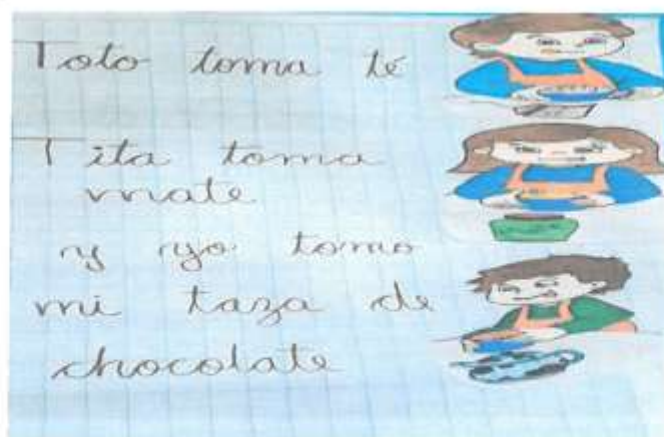 Toto toma té
Tita toma
mate
y yo tomo
mi taza de
chocolate